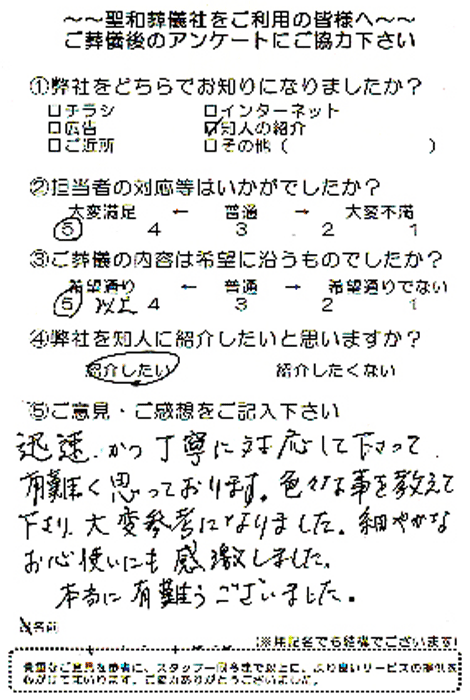 ～～聖和葬儀社をご利用の皆様へ～～
ご葬儀後のアンケートにご協力下さい
①弊社をどちらでお知りになりましたか？
□チラシ □インターネット
□広告 ☑知人の紹介
□ご近所 □その他（ ）
②担当者の対応等はいかがでしたか？
大変満足 ← 普通 → 大変不満
⑤ 4 3 2 1
③ご葬儀の内容は希望に沿うものでしたか？
希望通り ← 普通 → 希望通りでない
⑤ 以上 4 3 2 1
④弊社を知人に紹介したいと思いますか？
紹介したい 紹介したくない
⑤ご意見・ご感想をご記入下さい
迅速、かつ丁寧に対応して下さって、
有難く思っております。色々な事を教えて
下さり、大変参考になりました。細やかな
お心使いにも感激しました。
本当に有難うございました。
お名前
(※無記名でも結構でございます)
貴重なご意見を参考に、スタッフ一同今まで以上に、より良いサービスの提供を
心がけてまいります。ご協力ありがとうございました。